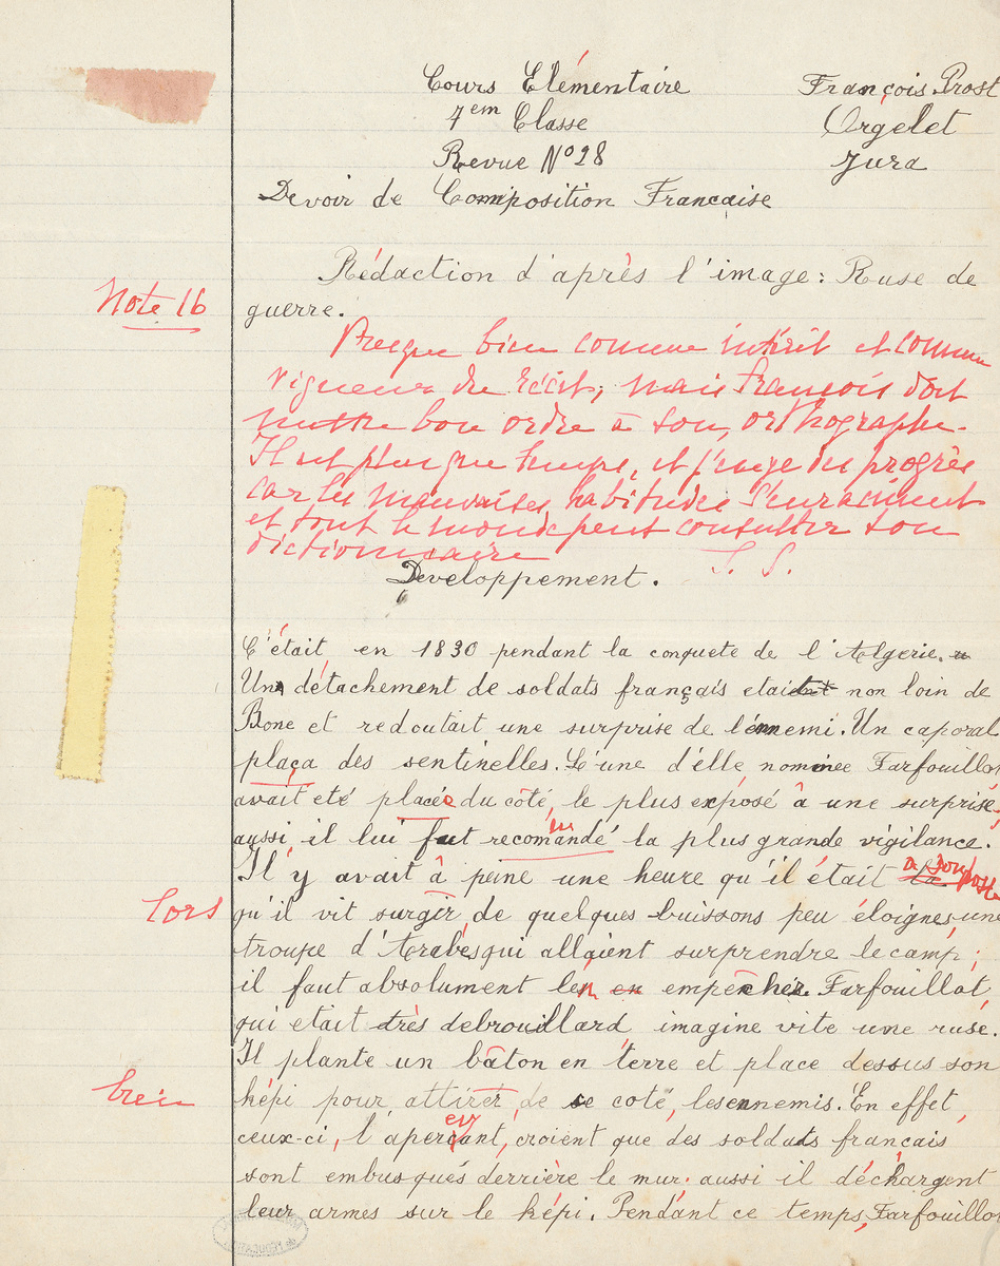 Cours Elémentaire
François Prost
7em Classe
Orgelet
Revue N° 28
Jura
Devoir de Composition Française
Rédaction d'après l'image : Ruse de
guerre.
Note 16
Presque bien comme intérêt et comme
vigueur du récit ; mais François doit
mettre bon ordre à son orthographe.
Il est plus que temps, et j'exige du progrès
car les mauvaises habitudes s'enracinent
et tout le monde peut consulter son
dictionnaire
J. S.
Developpement.
C'était en 1830 pendant la conquete de l'Algerie.
Un détachement de soldats français etait non loin de
Bone et redoutait une surprise de l'énnemi. Un caporal
plaça des sentinelles. L'une d'élle, nommée Farfouillot
avait eté placée du côté, le plus exposé à une surprise.
aussi, il lui fut recommandé la plus grande vigilance.
Il y avait à peine une heure qu'il était là à son poste
lors
qu'il vit surgir, de quelques buissons peu éloignes, une
troupe d'Arabes qui allaient surprendre le camp ;
il faut absolument les en empêcher. Farfouillot,
qui etait très debrouillard imagine vite une ruse.
Il plante un bâton en terre et place dessus son
bien
képi pour attirer, de se coté, les ennemis. En effet,
ceux-ci, l'aperçant, croient que des soldats francais
ev
sont embusqués derrière le mur. aussi il déchargent
leur armes sur le képi. Pendant ce temps, Farfouillot